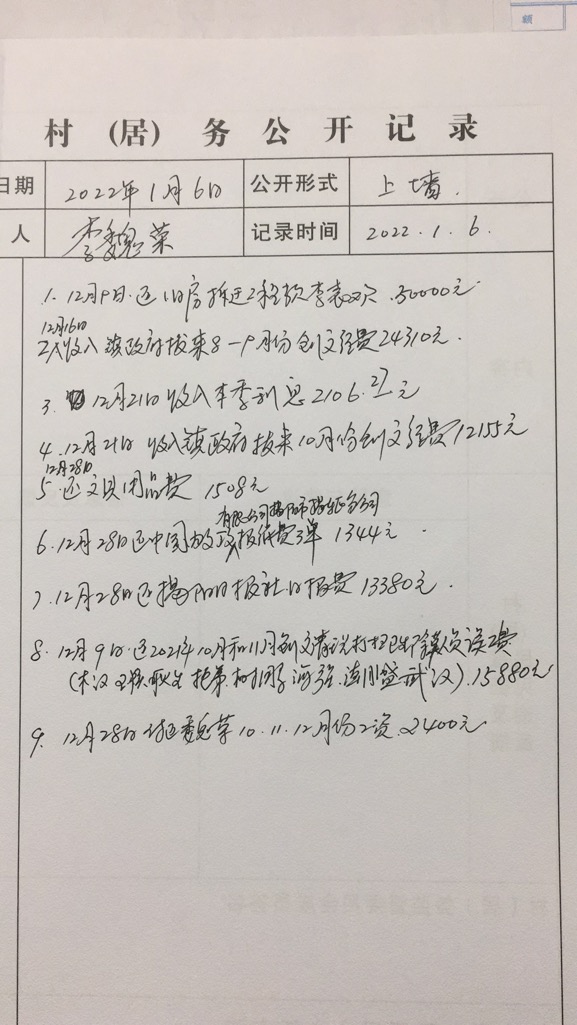 额
村（居）务公开记录
日期 2022年1月6日 公开形式 上墙.
人 李魏忠荣 记录时间 2022.1.6.
1. 12月9日.还旧房拆迁工程款李表欢.30000元
12月16日
2.收入镇政府拔来8-9月份创文经费24310元.
3. 12月21日收入本季利息2106.27元
4. 12月21日收入镇政府拔来10月份创文经费12155元
12月28日
5.还文具用品费 1508元
有限公司揭阳市 分公司
6. 12月28日还中国 报纸费3单 1344元.
7. 12月28日还揭阳日报社日报费13380元.
8. 12月9日.还2021年10月和11月创文清洗打扫卫生 人员误工费
(木汉 海强 武汉).15880元
9. 12月28日 魏忠荣10.11.12月份工资.2400元.